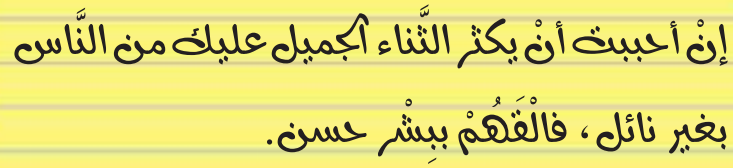 إنْ أحببت أنْ يكثر الثَّناء الجميل عليك من النَّاس
بغير نائل، فالْقَهُمْ بِبشْر حسن.